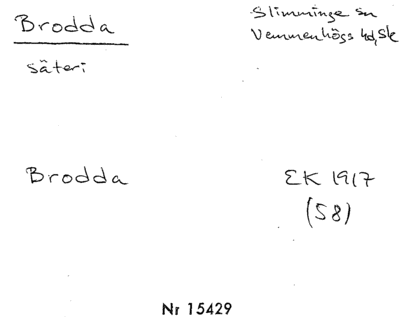 Brodda
Slimminge sn
Vemmenhögs hd, Sk
säteri
Brodda
EK 1917
(58)
Nr 15429